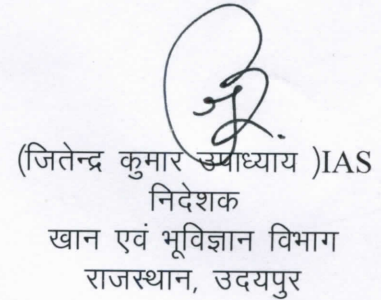 (जितेन्द्र कुमार उपाध्याय )IAS
निदेशक
खान एवं भूविज्ञान विभाग
राजस्थान, उदयपुर